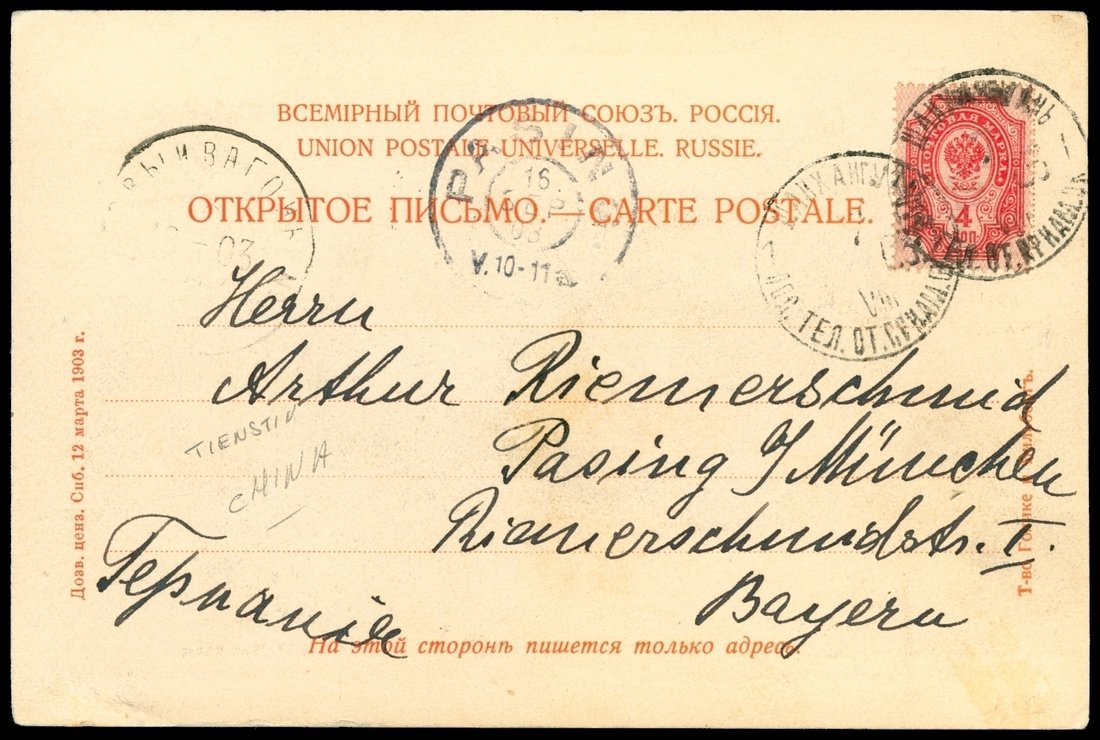 ВСЕМІРНЫЙ ПОЧТОВЫЙ СОЮЗЪ. РОССІЯ.
UNION POSTALE UNIVERSELLE. RUSSIE.
ОТКРЫТОЕ ПИСЬМО.—CARTE POSTALE.
ПОЧТОВАЯ МАРКА.
4
КОП
ВАГОНЪ
03
PASING
16
03
V.10-11
VIII
ПОЧ. ТЕЛ. ОТ.
ТЕЛ. ОТ.
Herrn
Arthur Riemerschmid
Pasing b/München
Riemerschmidstr. I.
Bayern
Германіе
TIENSTIN
CHINA
На этой сторонѣ пишется только адресъ.
Дозв. ценз. Спб. 12 марта 1903 г.
Т-во Голике и